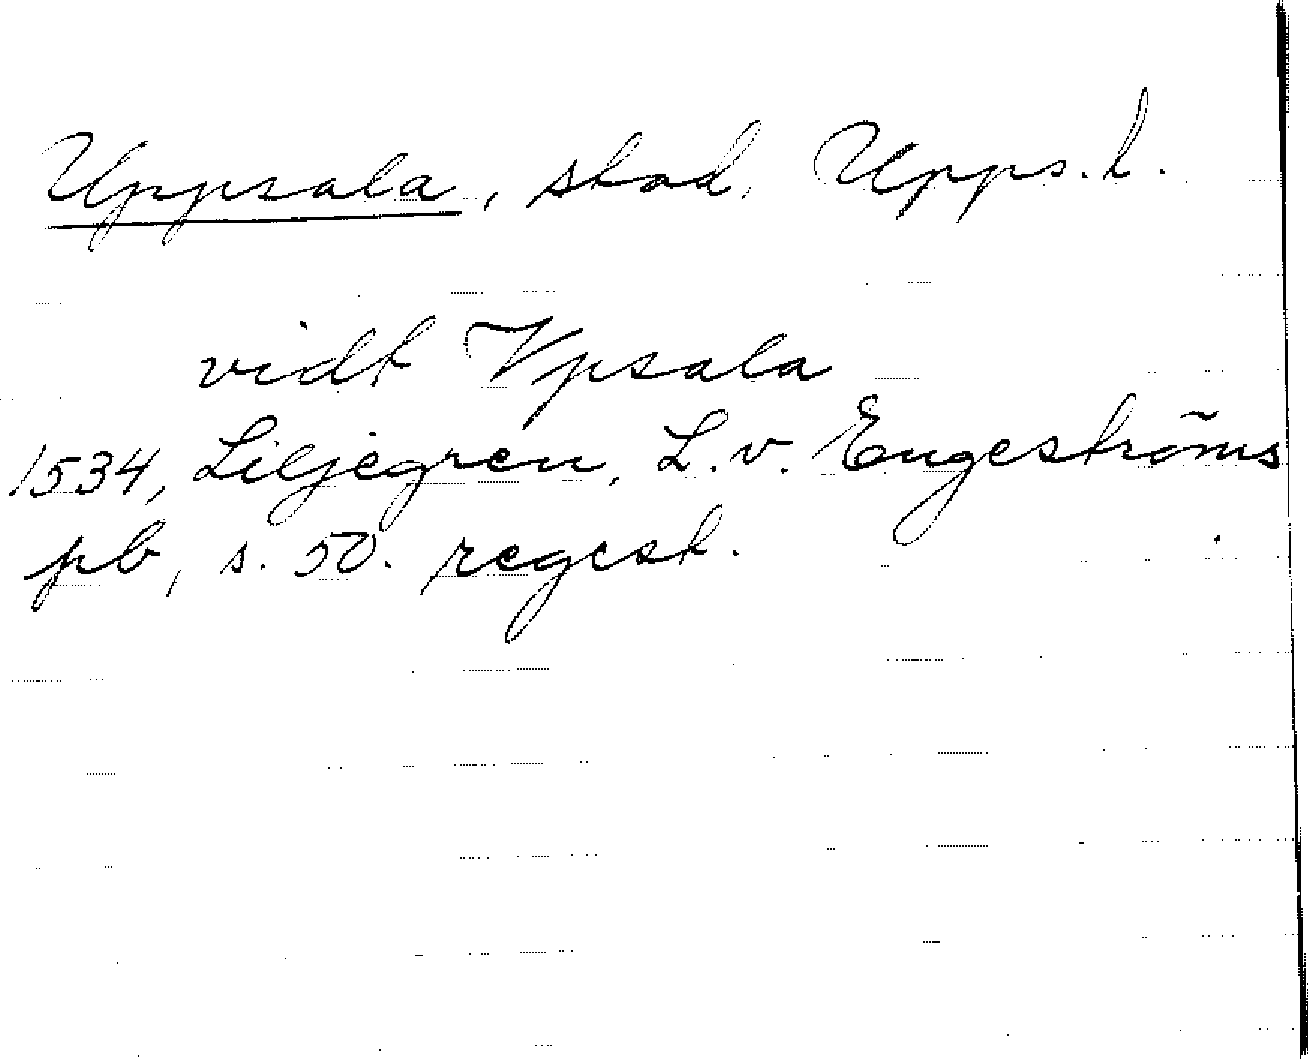 Uppsala, stad, Upps. l.
vidt Vpsala
1534, Liljegren, L. v. Engeströms
pb, s. 50. regest.